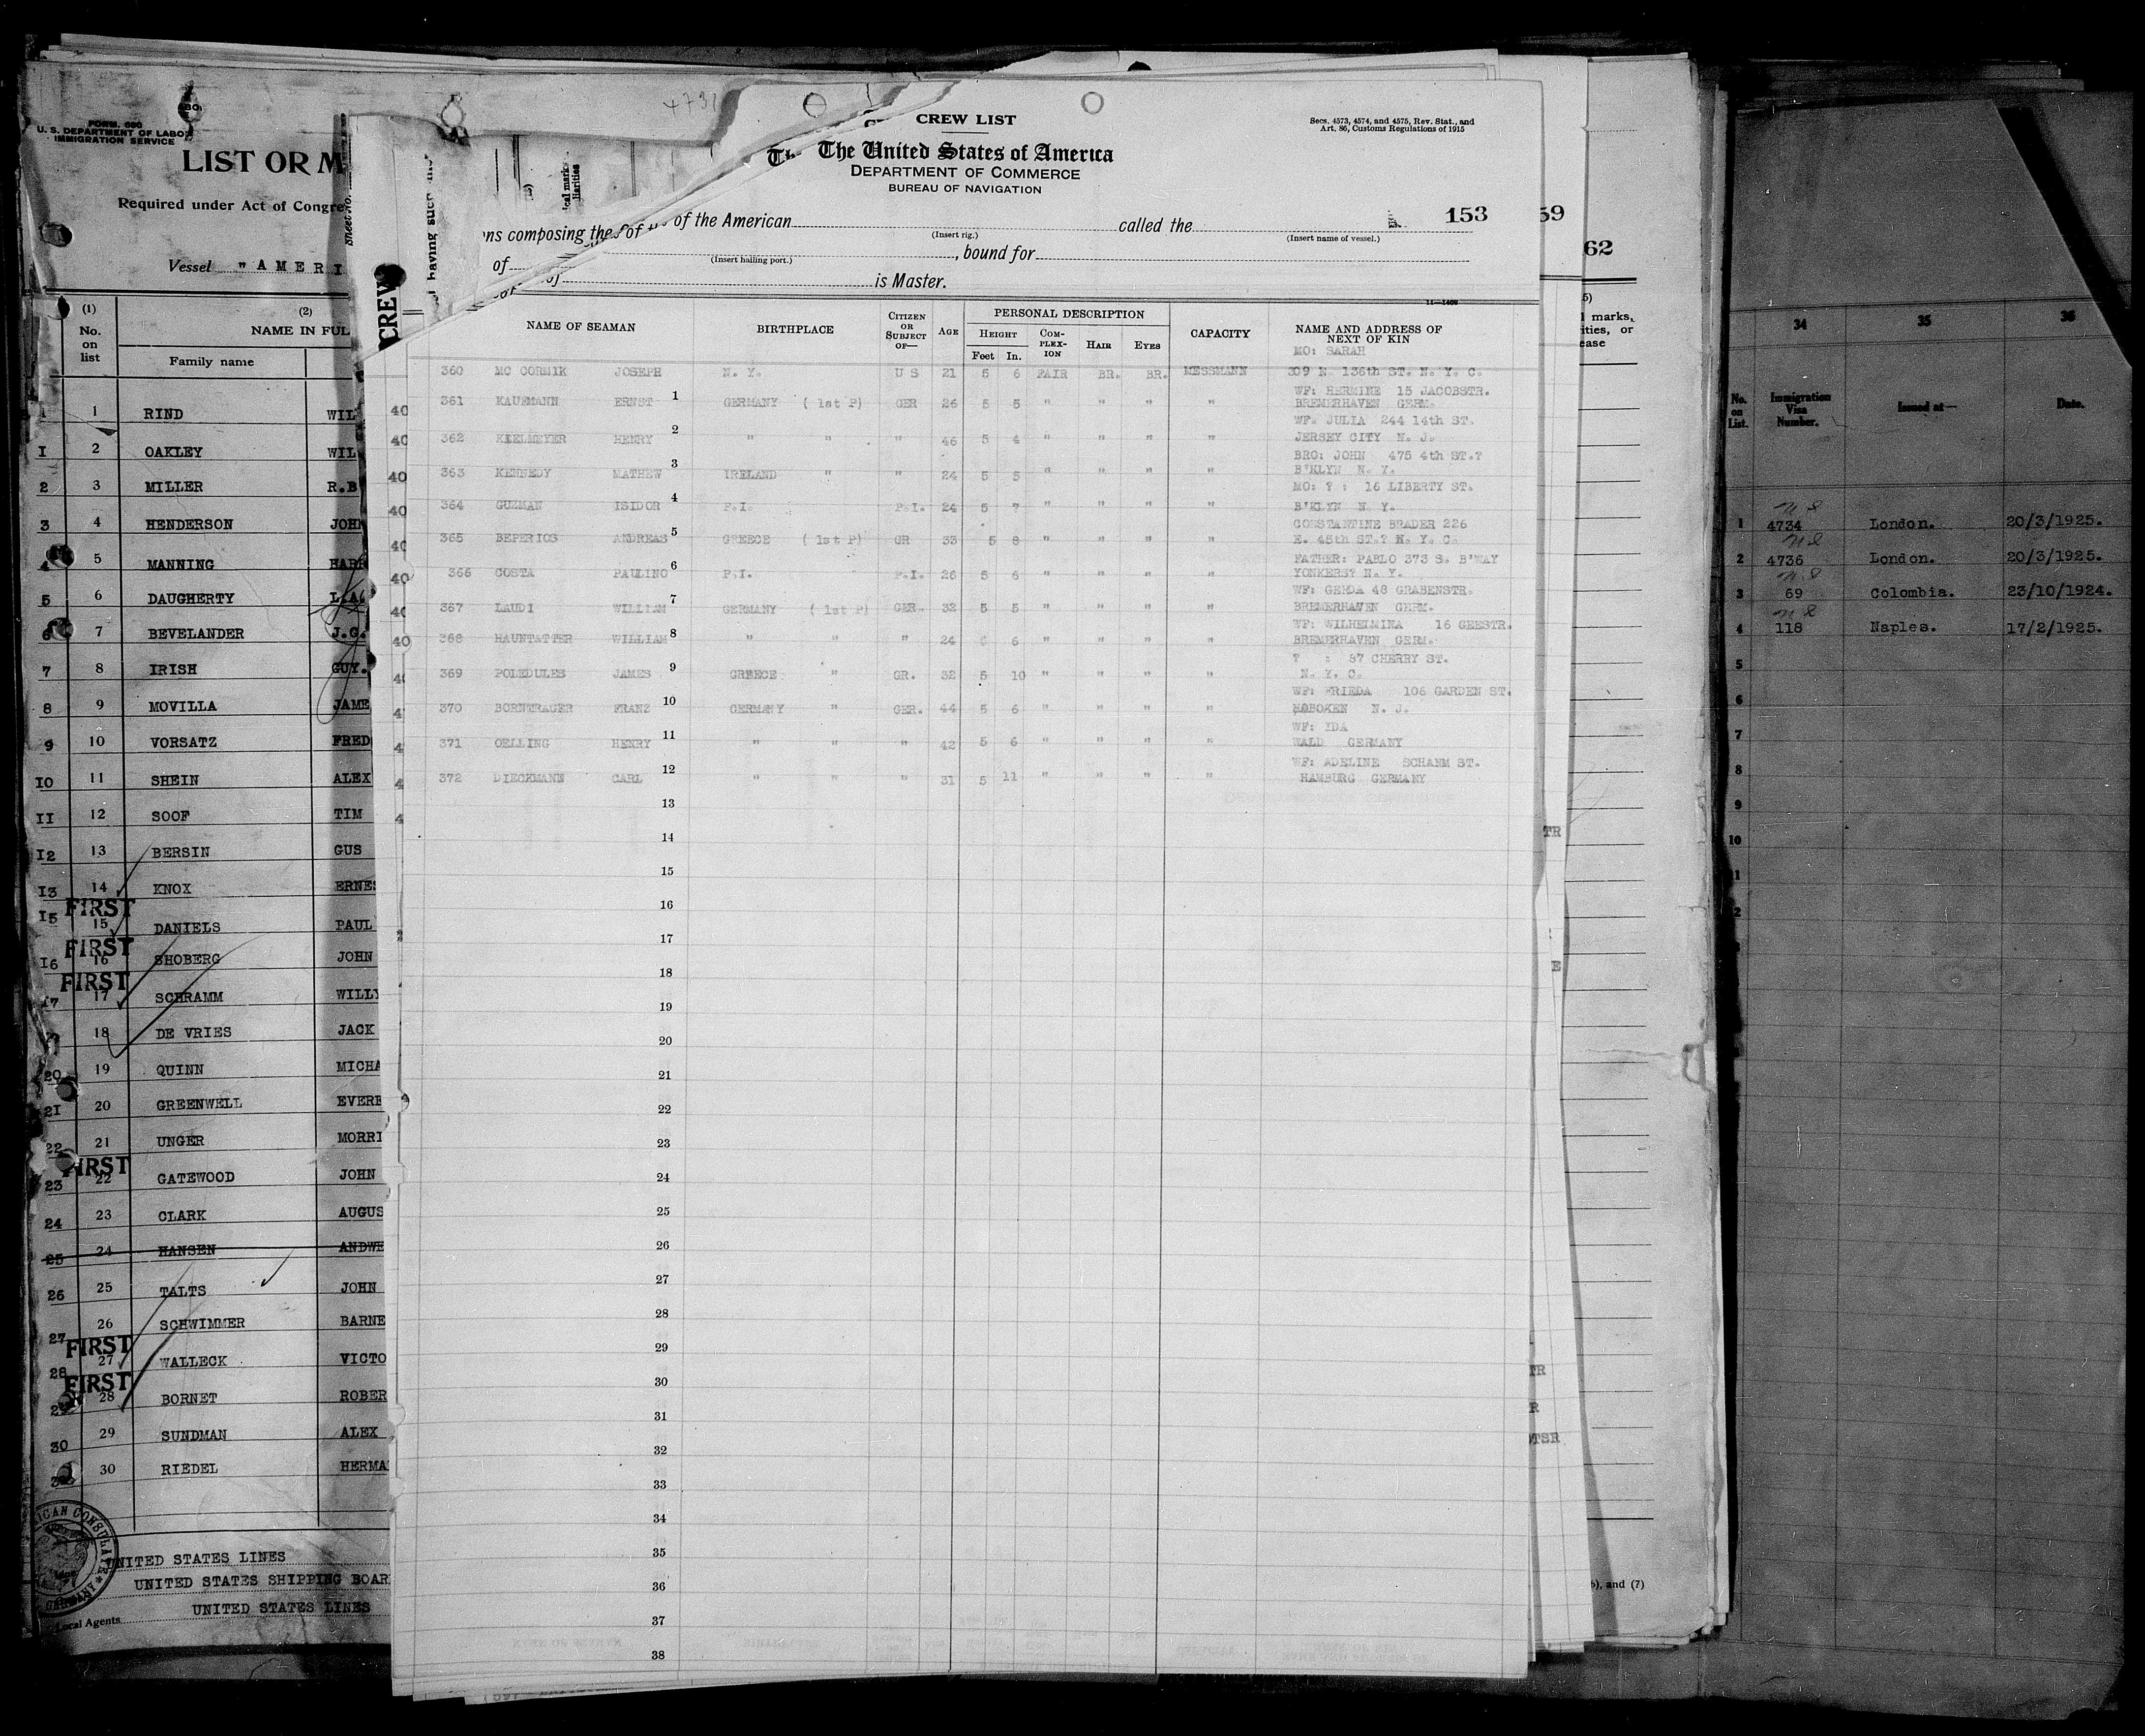 FORM 680
U. S. DEPARTMENT OF LABOR
IMMIGRATION SERVICE
LIST OR M
Required under Act of Congre
Sheet No.
Vessel "AMERI
(1)
No.
on
list
(2)
NAME IN FUL
Family name
1 1 RIND WIL
I 2 OAKLEY WIL
2 3 MILLER R.B
3 4 HENDERSON JOHN
4 5 MANNING HARR
5 6 DAUGHERTY L.A.
6 7 BEVELANDER J.G.
7 8 IRISH GUY.
8 9 MOVILLA JAME
9 10 VORSATZ FRED
IO 11 SHEIN ALEX
II 12 SOOF TIM
I2 13 BERSIN GUS
I3 14 KNOX ERNES
FIRST
I5 15 DANIELS PAUL
FIRST
I6 16 SHOBERG JOHN
FIRST
I7 17 SCHRAMM WILLY
18 DE VRIES JACK
20 19 QUINN MICHA
21 20 GREENWELL EVERE
22 21 UNGER MORRI
FIRST
23 22 GATEWOOD JOHN
24 23 CLARK AUGUS
25 24 HANSEN ANDWE
26 25 TALTS JOHN
27 26 SCHWIMMER BARNE
FIRST
28 27 WALLECK VICTO
FIRST
29 28 BORNET ROBER
30 29 SUNDMAN ALEX
30 RIEDEL HERMA
UNITED STATES LINES
UNITED STATES SHIPPING BOAR
UNITED STATES LINES
Local Agents
4731
having such
CREW
CREW LIST
Secs. 4573, 4574, and 4575, Rev. Stat., and
Art. 86, Customs Regulations of 1915
The United States of America
DEPARTMENT OF COMMERCE
BUREAU OF NAVIGATION
153
59
62
ns composing the of of the American called the
(Insert rig.) (Insert name of vessel.)
of , bound for
(Insert hailing port.)
is Master.
11—1406
NAME OF SEAMAN
BIRTHPLACE
CITIZEN
OR
SUBJECT
OF—
AGE
PERSONAL DESCRIPTION
HEIGHT
Feet In.
COM-
PLEX-
ION
HAIR
EYES
CAPACITY
NAME AND ADDRESS OF
NEXT OF KIN
MO: SARAH
360 MC CORMIK JOSEPH N. Y. U S 21 5 6 FAIR BR. BR. MESSMANN 309 N. 136th ST. N. Y. C.
WF: HERMINE 15 JACOBSTR.
361 KAUFMANN ERNST 1 GERMANY ( 1st P) GER 26 5 5 " " " " BREMERHAVEN GERM.
WF. JULIA 244 14th ST.
362 KIELMEYER HENRY 2 " " " 46 5 4 " " " " JERSEY CITY N. J.
BRO: JOHN 475 4th ST.?
363 KENNEDY MATHEW 3 IRELAND " " 24 5 5 " " " " B'KLYN N. Y.
MO: ? : 16 LIBERTY ST.
364 GUZMAN ISIDOR 4 P.I. P.I. 24 5 7 " " " " B'KLYN N. Y.
CONSTANTINE BRADER 226
365 BEPERIOS ANDREAS 5 GREECE ( 1st P) GR 33 5 8 " " " " E. 45th ST.? N. Y. C.
FATHER: PABLO 373 S. B'WAY
366 COSTA PAULINO 6 P.I. P.I. 26 5 6 " " " " YONKERS? N. Y.
WF: GERDA 48 GRABENSTR.
367 LAUDI WILLIAM 7 GERMANY ( 1st P) GER. 32 5 5 " " " " BREMERHAVEN GERM.
WF: WILHELMINA 16 GEESTR.
368 HAUNTATTER WILLIAM 8 " " " 24 6 " " " " BREMERHAVEN GERM.
? : 87 CHERRY ST.
369 POLEDULES JAMES 9 GREECE " GR. 32 5 10 " " " " N. Y. C.
WF: FRIEDA 106 GARDEN ST.
370 BORNTRAGER FRANZ 10 GERMANY " GER. 44 5 6 " " " " HOBOKEN N. J.
WF: IDA
371 OELLING HENRY 11 " " " 42 5 6 " " " " WALD GERMANY
WF: ADELINE SCHAEM ST.
372 DIECKMANN CARL 12 " " " 31 5 11 " " " " HAMBURG GERMANY
13
14
15
16
17
18
19
20
21
22
23
24
25
26
27
28
29
30
31
32
33
34
35
36
37
38
5)
l marks,
ities, or
ease
TR
E
TR
R
TSR
6), and (7)
34 35 36
No.
on
List.
Immigration
Visa
Number.
Issued at—
Date.
1 4734 London. 20/3/1925.
2 4736 London. 20/3/1925.
3 69 Colombia. 23/10/1924.
4 118 Naples. 17/2/1925.
5
6
7
8
9
10
1
2